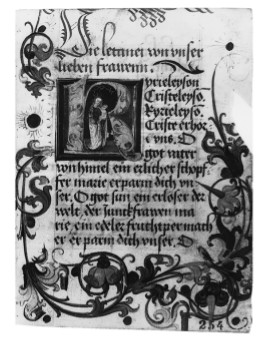 Die letanei von vnser
lieben frawenn.
Kyrieleyson
Cristeleyso.
Kyrieleyso.
Criste erhor
e vns. O
got vater
von himel ein erlicher schopf
fer marie erparm dich vn
ser. O got sun ein erloser der
welt, der junckfrawen ma
rie ein edele fruchtper mach
er er parm dich vnser. O
254